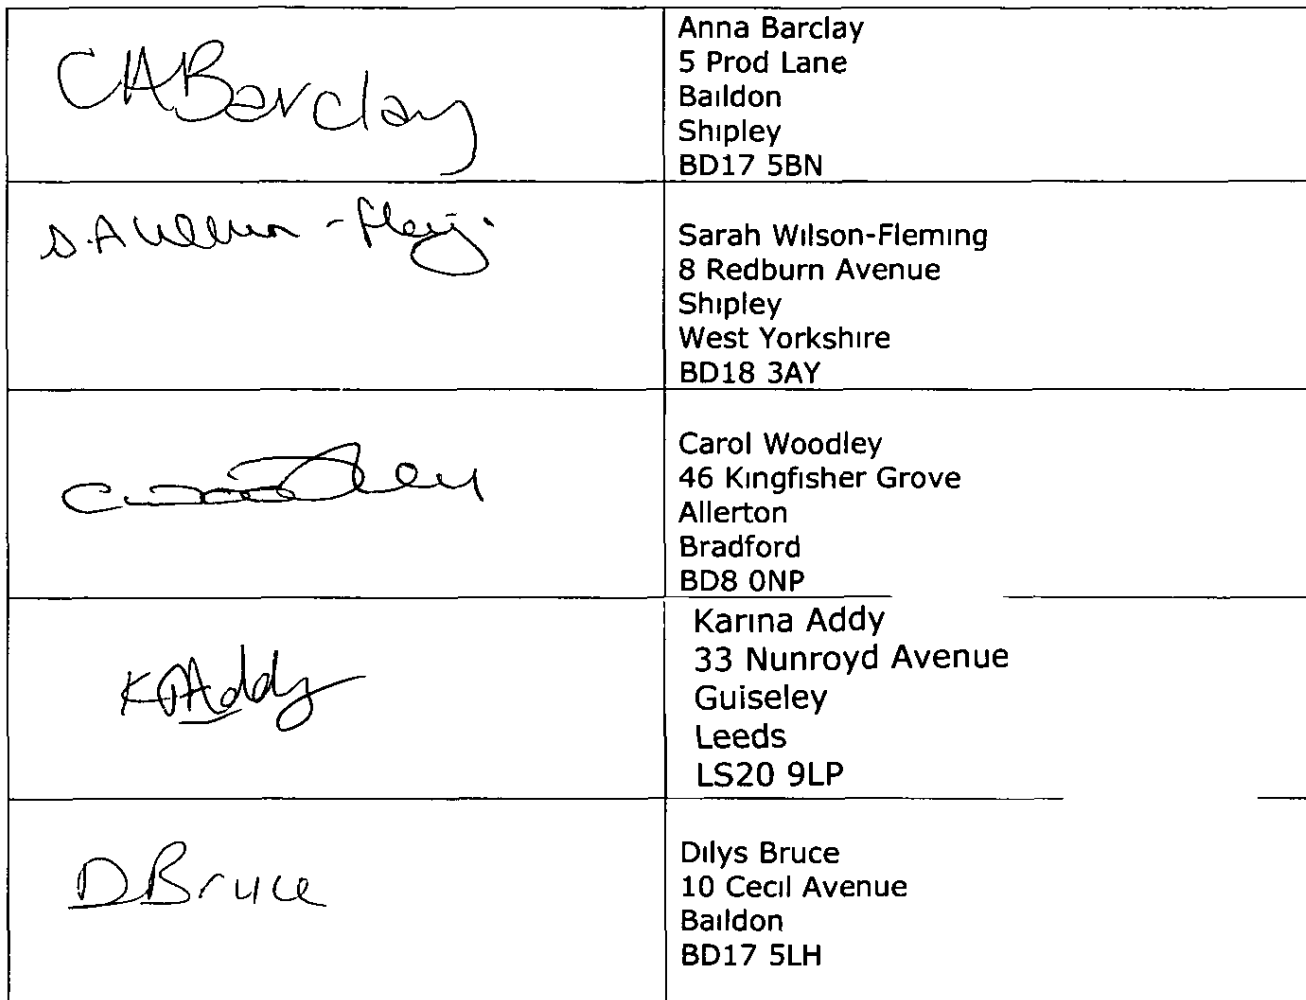 CABarclay
Anna Barclay
5 Prod Lane
Baildon
Shipley
BD17 5BN
S.A Wilson-Fleming
Sarah Wilson-Fleming
8 Redburn Avenue
Shipley
West Yorkshire
BD18 3AY
C Woodley
Carol Woodley
46 Kingfisher Grove
Allerton
Bradford
BD8 0NP
Addy
Karina Addy
33 Nunroyd Avenue
Guiseley
Leeds
LS20 9LP
DBruce
Dilys Bruce
10 Cecil Avenue
Baildon
BD17 5LH